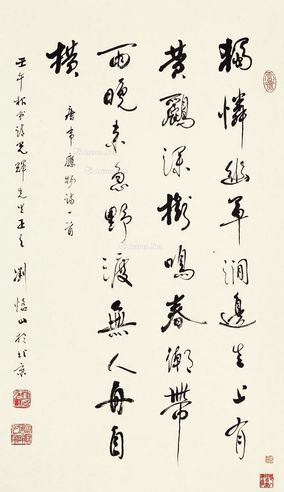 獨憐幽草澗邊生上有
黃鸝深樹鳴春潮帶
雨晚來急野渡無人舟自
橫
唐韋應物詩一首
壬午秋書請光輝先生正之
劉恪山於北京